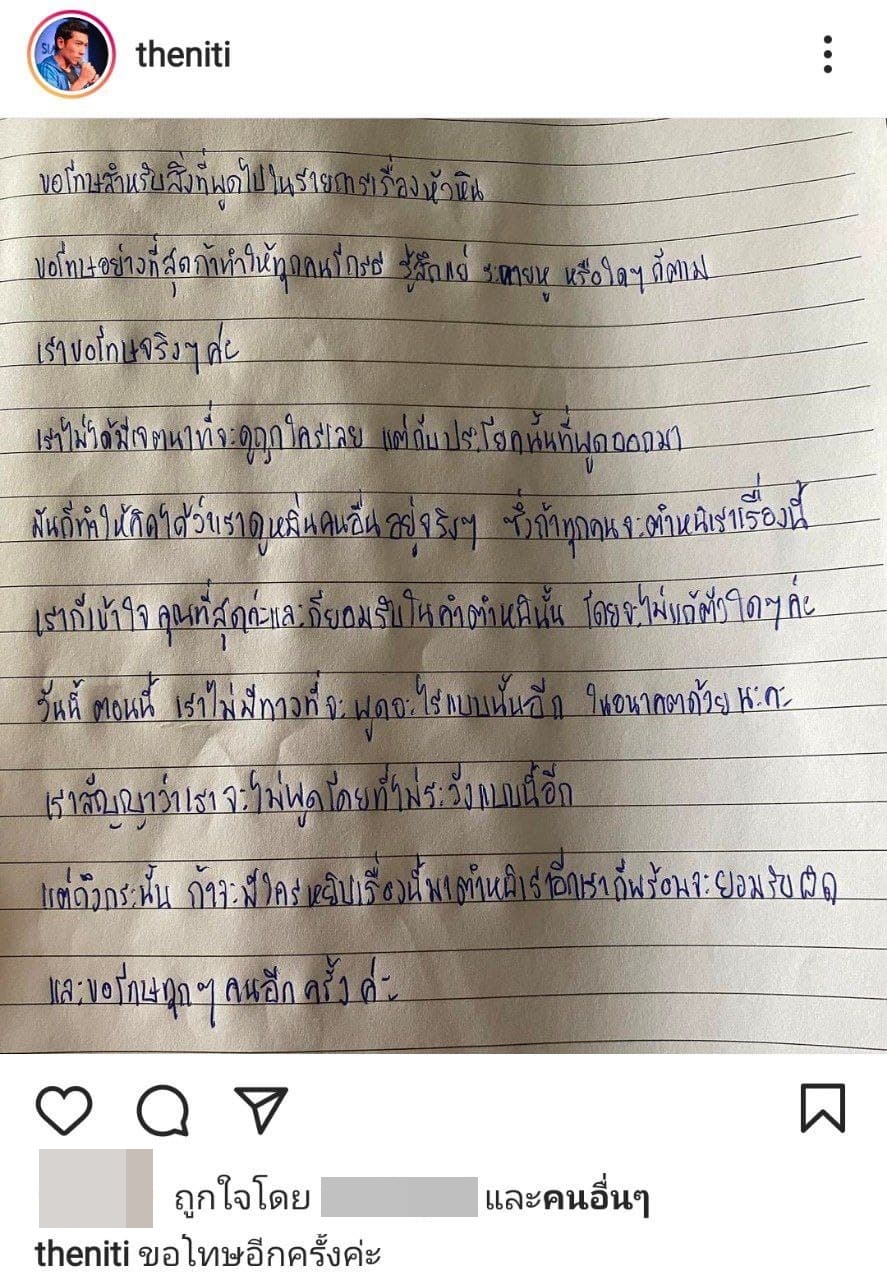 theniti
ขอโทษสำหรับสิ่งที่พูดไปในรายการเรื่องหัวหิน
ขอโทษอย่างที่สุดถ้าทำให้ทุกคนโกรธ รู้สึกแย่ ระคายหู หรือใดๆก็ตาม
เราขอโทษจริงๆค่ะ
เราไม่ได้มีเจตนาที่จะดูถูกใครเลย แต่กับประโยคนั้นที่พูดออกมา
มันก็ทำให้คิดได้ว่าเราดูหมิ่นคนอื่นอยู่จริงๆ ซึ่งถ้าทุกคนจะตำหนิเราเรื่องนี้
เราก็เข้าใจคุณที่สุดค่ะและก็ยอมรับในคำตำหนินั้น โดยจะไม่แก้ตัวใดๆค่ะ
วันนี้ ตอนนี้ เราไม่มีทางที่จะพูดอะไรแบบนั้นอีก ในอนาคตด้วยนะคะ
เราสัญญาว่าเราจะไม่พูดโดยที่ไม่ระวังแบบนี้อีก
แต่ถึงกระนั้น ถ้าจะมีใครหยิบเรื่องนี้มาตำหนิเราอีกเราก็พร้อมจะยอมรับผิด
และขอโทษทุกๆคนอีกครั้งค่ะ
ถูกใจโดย และคนอื่นๆ
theniti ขอโทษอีกครั้งค่ะ